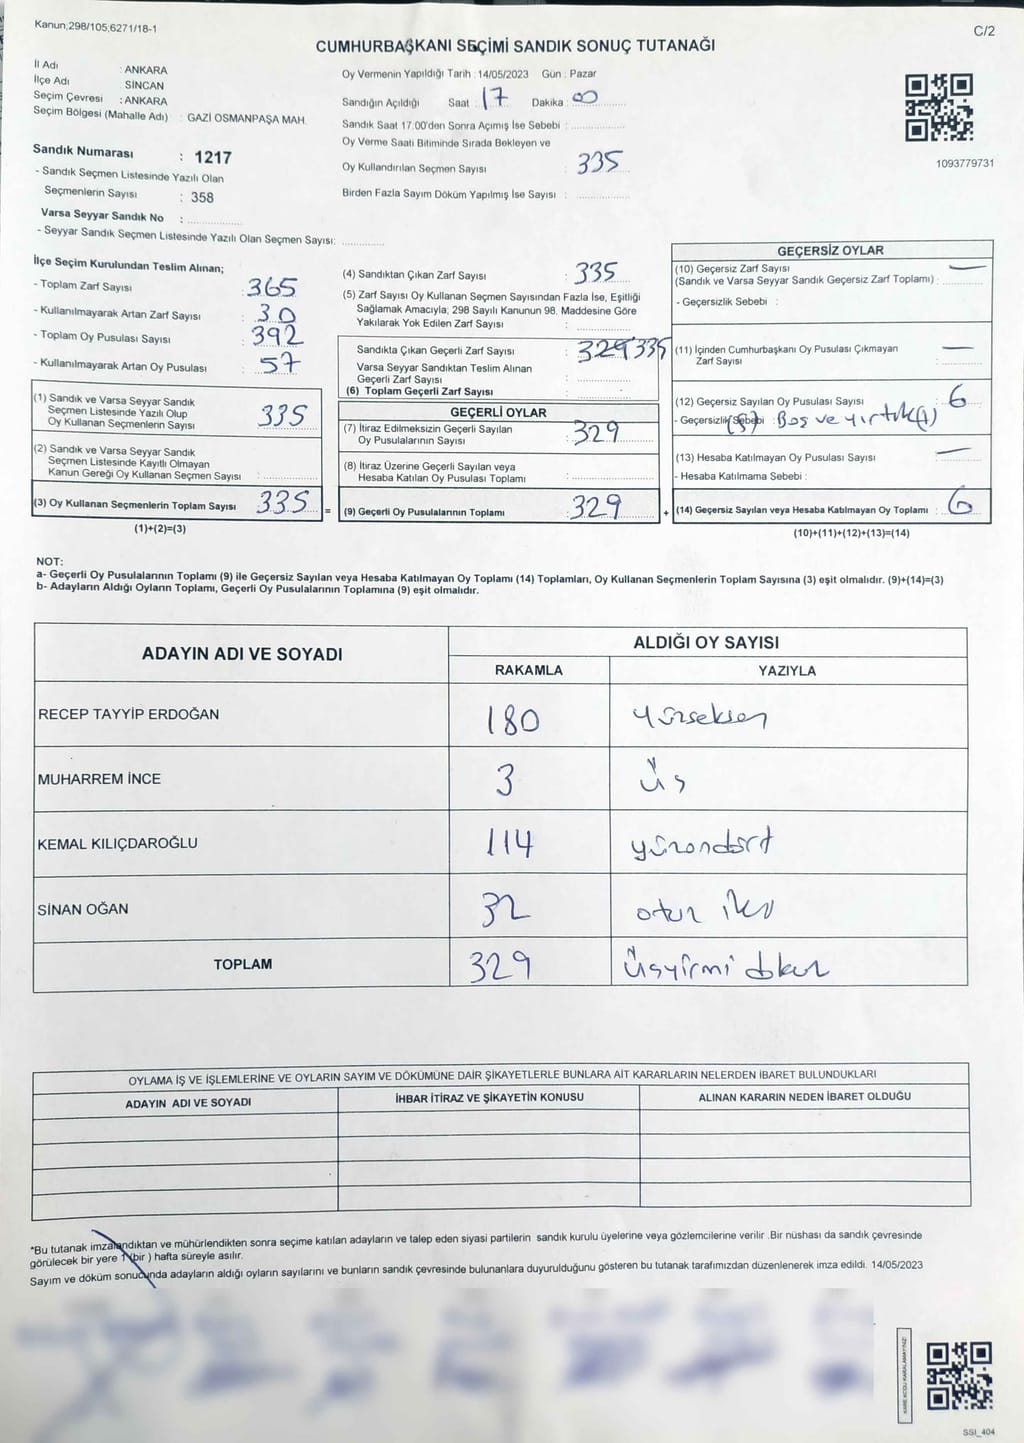 Kanun;298/105;6271/18-1
C/2
CUMHURBAŞKANI SEÇİMİ SANDIK SONUÇ TUTANAĞI
İl Adı : ANKARA
İlçe Adı : SİNCAN
Seçim Çevresi : ANKARA
Seçim Bölgesi (Mahalle Adı) : GAZİ OSMANPAŞA MAH.
Sandık Numarası : 1217
- Sandık Seçmen Listesinde Yazılı Olan
Seçmenlerin Sayısı : 358
Varsa Seyyar Sandık No :
- Seyyar Sandık Seçmen Listesinde Yazılı Olan Seçmen Sayısı:
Oy Vermenin Yapıldığı Tarih : 14/05/2023 Gün : Pazar
Sandığın Açıldığı Saat : 17 Dakika : 00
Sandık Saat 17.00'den Sonra Açımış İse Sebebi :
Oy Verme Saati Bitiminde Sırada Bekleyen ve
Oy Kullandırılan Seçmen Sayısı : 335
Birden Fazla Sayım Döküm Yapılmış İse Sayısı :
1093779731
İlçe Seçim Kurulundan Teslim Alınan;
- Toplam Zarf Sayısı : 365
- Kullanılmayarak Artan Zarf Sayısı : 30
- Toplam Oy Pusulası Sayısı : 392
- Kullanılmayarak Artan Oy Pusulası : 57
(1) Sandık ve Varsa Seyyar Sandık
Seçmen Listesinde Yazılı Olup
Oy Kullanan Seçmenlerin Sayısı : 335
(2) Sandık ve Varsa Seyyar Sandık
Seçmen Listesinde Kayıtlı Olmayan
Kanun Gereği Oy Kullanan Seçmen Sayısı :
(3) Oy Kullanan Seçmenlerin Toplam Sayısı : 335 =
(1)+(2)=(3)
(4) Sandıktan Çıkan Zarf Sayısı : 335
(5) Zarf Sayısı Oy Kullanan Seçmen Sayısından Fazla İse, Eşitliği
Sağlamak Amacıyla; 298 Sayılı Kanunun 98. Maddesine Göre
Yakılarak Yok Edilen Zarf Sayısı :
Sandıkta Çıkan Geçerli Zarf Sayısı : 329 335
Varsa Seyyar Sandıktan Teslim Alınan
Geçerli Zarf Sayısı :
(6) Toplam Geçerli Zarf Sayısı :
GEÇERLİ OYLAR
(7) İtiraz Edilmeksizin Geçerli Sayılan
Oy Pusulalarının Sayısı : 329
(8) İtiraz Üzerine Geçerli Sayılan veya
Hesaba Katılan Oy Pusulası Toplamı :
(9) Geçerli Oy Pusulalarının Toplamı : 329 +
GEÇERSİZ OYLAR
(10) Geçersiz Zarf Sayısı
(Sandık ve Varsa Seyyar Sandık Geçersiz Zarf Toplamı) : —
- Geçersizlik Sebebi :
(11) İçinden Cumhurbaşkanı Oy Pusulası Çıkmayan
Zarf Sayısı : —
(12) Geçersiz Sayılan Oy Pusulası Sayısı : 6
- Geçersizlik Sebebi : (5) Boş ve yırtık(1)
(13) Hesaba Katılmayan Oy Pusulası Sayısı : —
- Hesaba Katılmama Sebebi :
(14) Geçersiz Sayılan veya Hesaba Katılmayan Oy Toplamı : 6
(10)+(11)+(12)+(13)=(14)
NOT:
a- Geçerli Oy Pusulalarının Toplamı (9) ile Geçersiz Sayılan veya Hesaba Katılmayan Oy Toplamı (14) Toplamları, Oy Kullanan Seçmenlerin Toplam Sayısına (3) eşit olmalıdır. (9)+(14)=(3)
b- Adayların Aldığı Oyların Toplamı, Geçerli Oy Pusulalarının Toplamına (9) eşit olmalıdır.
ADAYIN ADI VE SOYADI
ALDIĞI OY SAYISI
RAKAMLA YAZIYLA
RECEP TAYYİP ERDOĞAN 180 yürseksen
MUHARREM İNCE 3 üş
KEMAL KILIÇDAROĞLU 114 yüzondört
SİNAN OĞAN 32 otuz iki
TOPLAM 329 üşyirmi dokuz
OYLAMA İŞ VE İŞLEMLERİNE VE OYLARIN SAYIM VE DÖKÜMÜNE DAİR ŞİKAYETLERLE BUNLARA AİT KARARLARIN NELERDEN İBARET BULUNDUKLARI
ADAYIN ADI VE SOYADI İHBAR İTİRAZ VE ŞİKAYETİN KONUSU ALINAN KARARIN NEDEN İBARET OLDUĞU
*Bu tutanak imzalandıktan ve mühürlendikten sonra seçime katılan adayların ve talep eden siyasi partilerin sandık kurulu üyelerine veya gözlemcilerine verilir .Bir nüshası da sandık çevresinde
görülecek bir yere 1 (bir ) hafta süreyle asılır.
Sayım ve döküm sonucunda adayların aldığı oyların sayılarını ve bunların sandık çevresinde bulunanlara duyurulduğunu gösteren bu tutanak tarafımızdan düzenlenerek imza edildi. 14/05/2023
KARE KODU KARALAMAYINIZ!
SSI_404